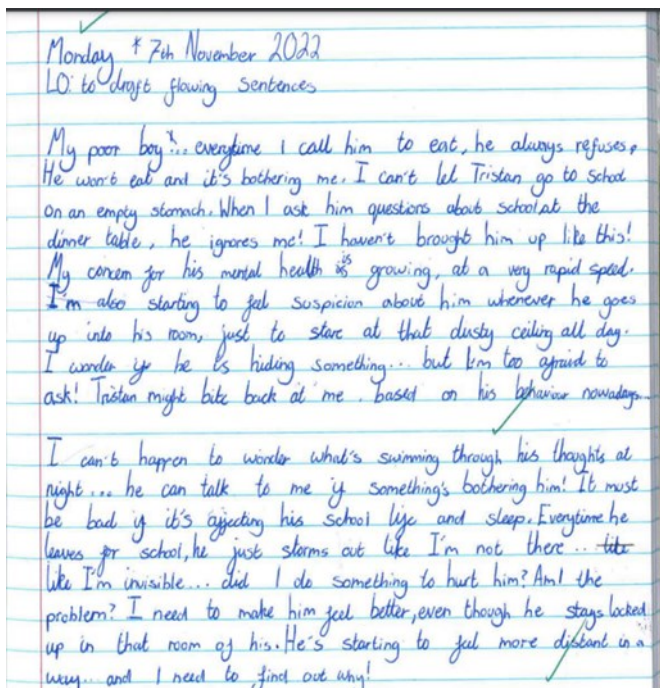 Monday * 7th November 2022
LO: to draft flowing sentences
My poor boy*... everytime I call him to eat, he always refuses,
He won't eat and it's bothering me. I can't let Tristan go to school
on an empty stomach. When I ask him questions about school at the
dinner table, he ignores me! I haven't brought him up like this!
My concern for his mental health is growing, at a very rapid speed.
I'm also starting to feel suspicion about him whenever he goes
up into his room, just to stare at that dusty ceiling all day.
I wonder if he is hiding something... but I'm too afraid to
ask! Tristan might bite back at me, based on his behaviour nowadays...
I can't happen to wonder what's swimming through his thoughts at
night... he can talk to me if something's bothering him! It must
be bad if it's affecting his school life and sleep. Everytime he
leaves for school, he just storms out like I'm not there...
like I'm invisible... did I do something to hurt him? Am I the
problem? I need to make him feel better, even though he stays locked
up in that room of his. He's starting to feel more distant in a
way... and I need to find out why!